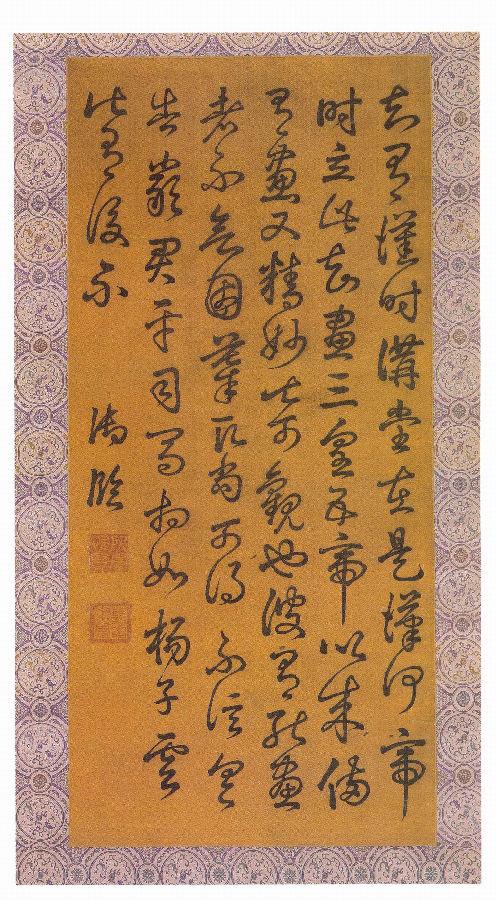 知有漢時講堂在是漢何帝
時立此知畫三皇五帝以來備
有畫又精妙甚可觀也彼有能畫
者不欲因摹取當可得不信具
告嚴君平司馬相如楊子雲
皆有後不
御臨